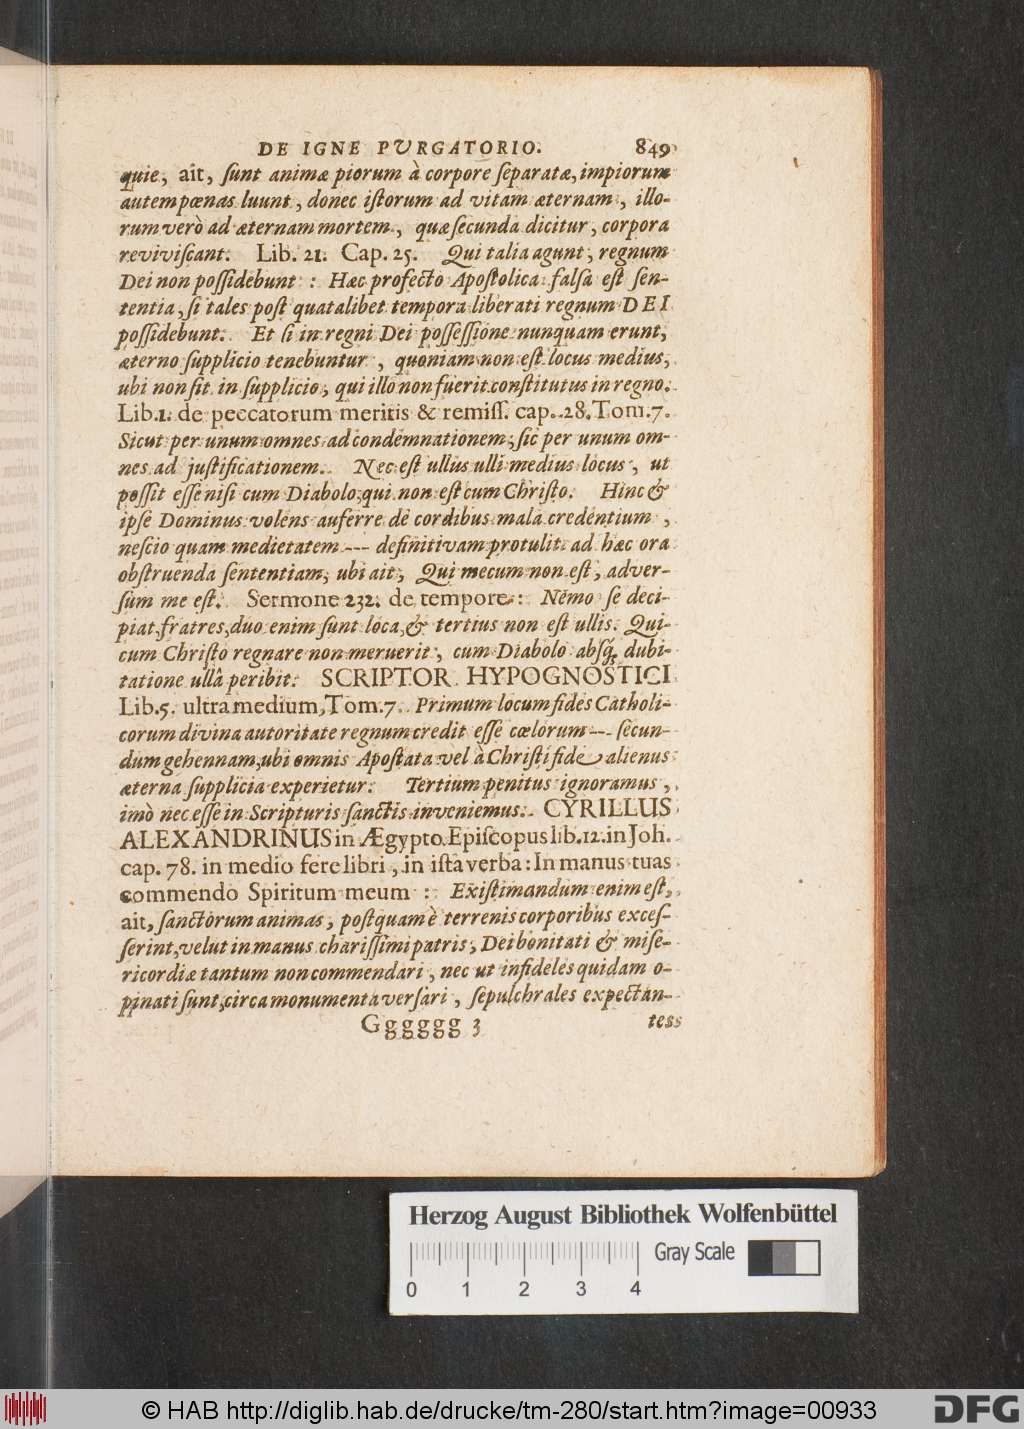 DE IGNE PVRGATORIO. 849
quie, ait, ſunt animæ piorum à corpore ſeparatæ, impiorum
autem pœnas luunt, donec iſtorum ad vitam æternam, illo-
rum verò ad æternam mortem, quæ ſecunda dicitur, corpora
reviviſcant. Lib. 21. Cap. 25. Qui talia agunt, regnum
Dei non poſſidebunt: Hæc profectò Apoſtolica falſa eſt ſen-
tentia, ſi tales poſt quatalibet tempora liberati regnum DEI
poſſidebunt. Et ſi in regni Dei poſſeſſione nunquam erunt,
æterno ſupplicio tenebuntur, quoniam non eſt locus medius,
ubi non ſit in ſupplicio, qui illo non fuerit conſtitutus in regno.
Lib. 1. de peccatorum meritis & remiſſ. cap. 28. Tom. 7.
Sicut per unum omnes ad condemnationem, ſic per unum om-
nes ad juſtificationem. Nec eſt ullus ulli medius locus, ut
poſſit eſſe niſi cum Diabolo, qui non eſt cum Chriſto. Hinc &
ipſe Dominus volens auferre de cordibus mala credentium,
neſcio quam medietatem --- definitivam protulit ad hæc ora
obſtruenda ſententiam, ubi ait, Qui mecum non eſt, adver-
ſùm me eſt. Sermone 232. de tempore: Nemo ſe deci-
piat, fratres, duo enim ſunt loca, & tertius non eſt ullis. Qui-
cum Chriſto regnare non meruerit, cum Diabolo abſq; dubi-
tatione ullâ peribit. SCRIPTOR HYPOGNOSTICI
Lib. 5. ultra medium, Tom. 7. Primum locum fides Catholi-
corum divina autoritate regnum credit eſſe cœlorum --- ſecun-
dum gehennam, ubi omnis Apoſtata vel à Chriſti fide alienus
æterna ſupplicia experietur. Tertium penitus ignoramus,
imò nec eſſe in Scripturis ſanctis inveniemus. CYRILLUS
ALEXANDRINUS in Ægypto Epiſcopus lib. 12. in Joh.
cap. 78. in medio fere libri, in iſta verba: In manus tuas
commendo Spiritum meum: Exiſtimandum enim eſt,
ait, ſanctorum animas, poſtquam è terrenis corporibus exceſ-
ſerint, velut in manus chariſſimi patris, Dei bonitati & miſe-
ricordiæ tantum non commendari, nec ut infideles quidam o-
pinati ſunt, circa monumenta verſari, ſepulchrales expectan-
Gggggg 3 tess
Herzog August Bibliothek Wolfenbüttel
Gray Scale
0 1 2 3 4
© HAB http://diglib.hab.de/drucke/tm-280/start.htm?image=00933
DFG